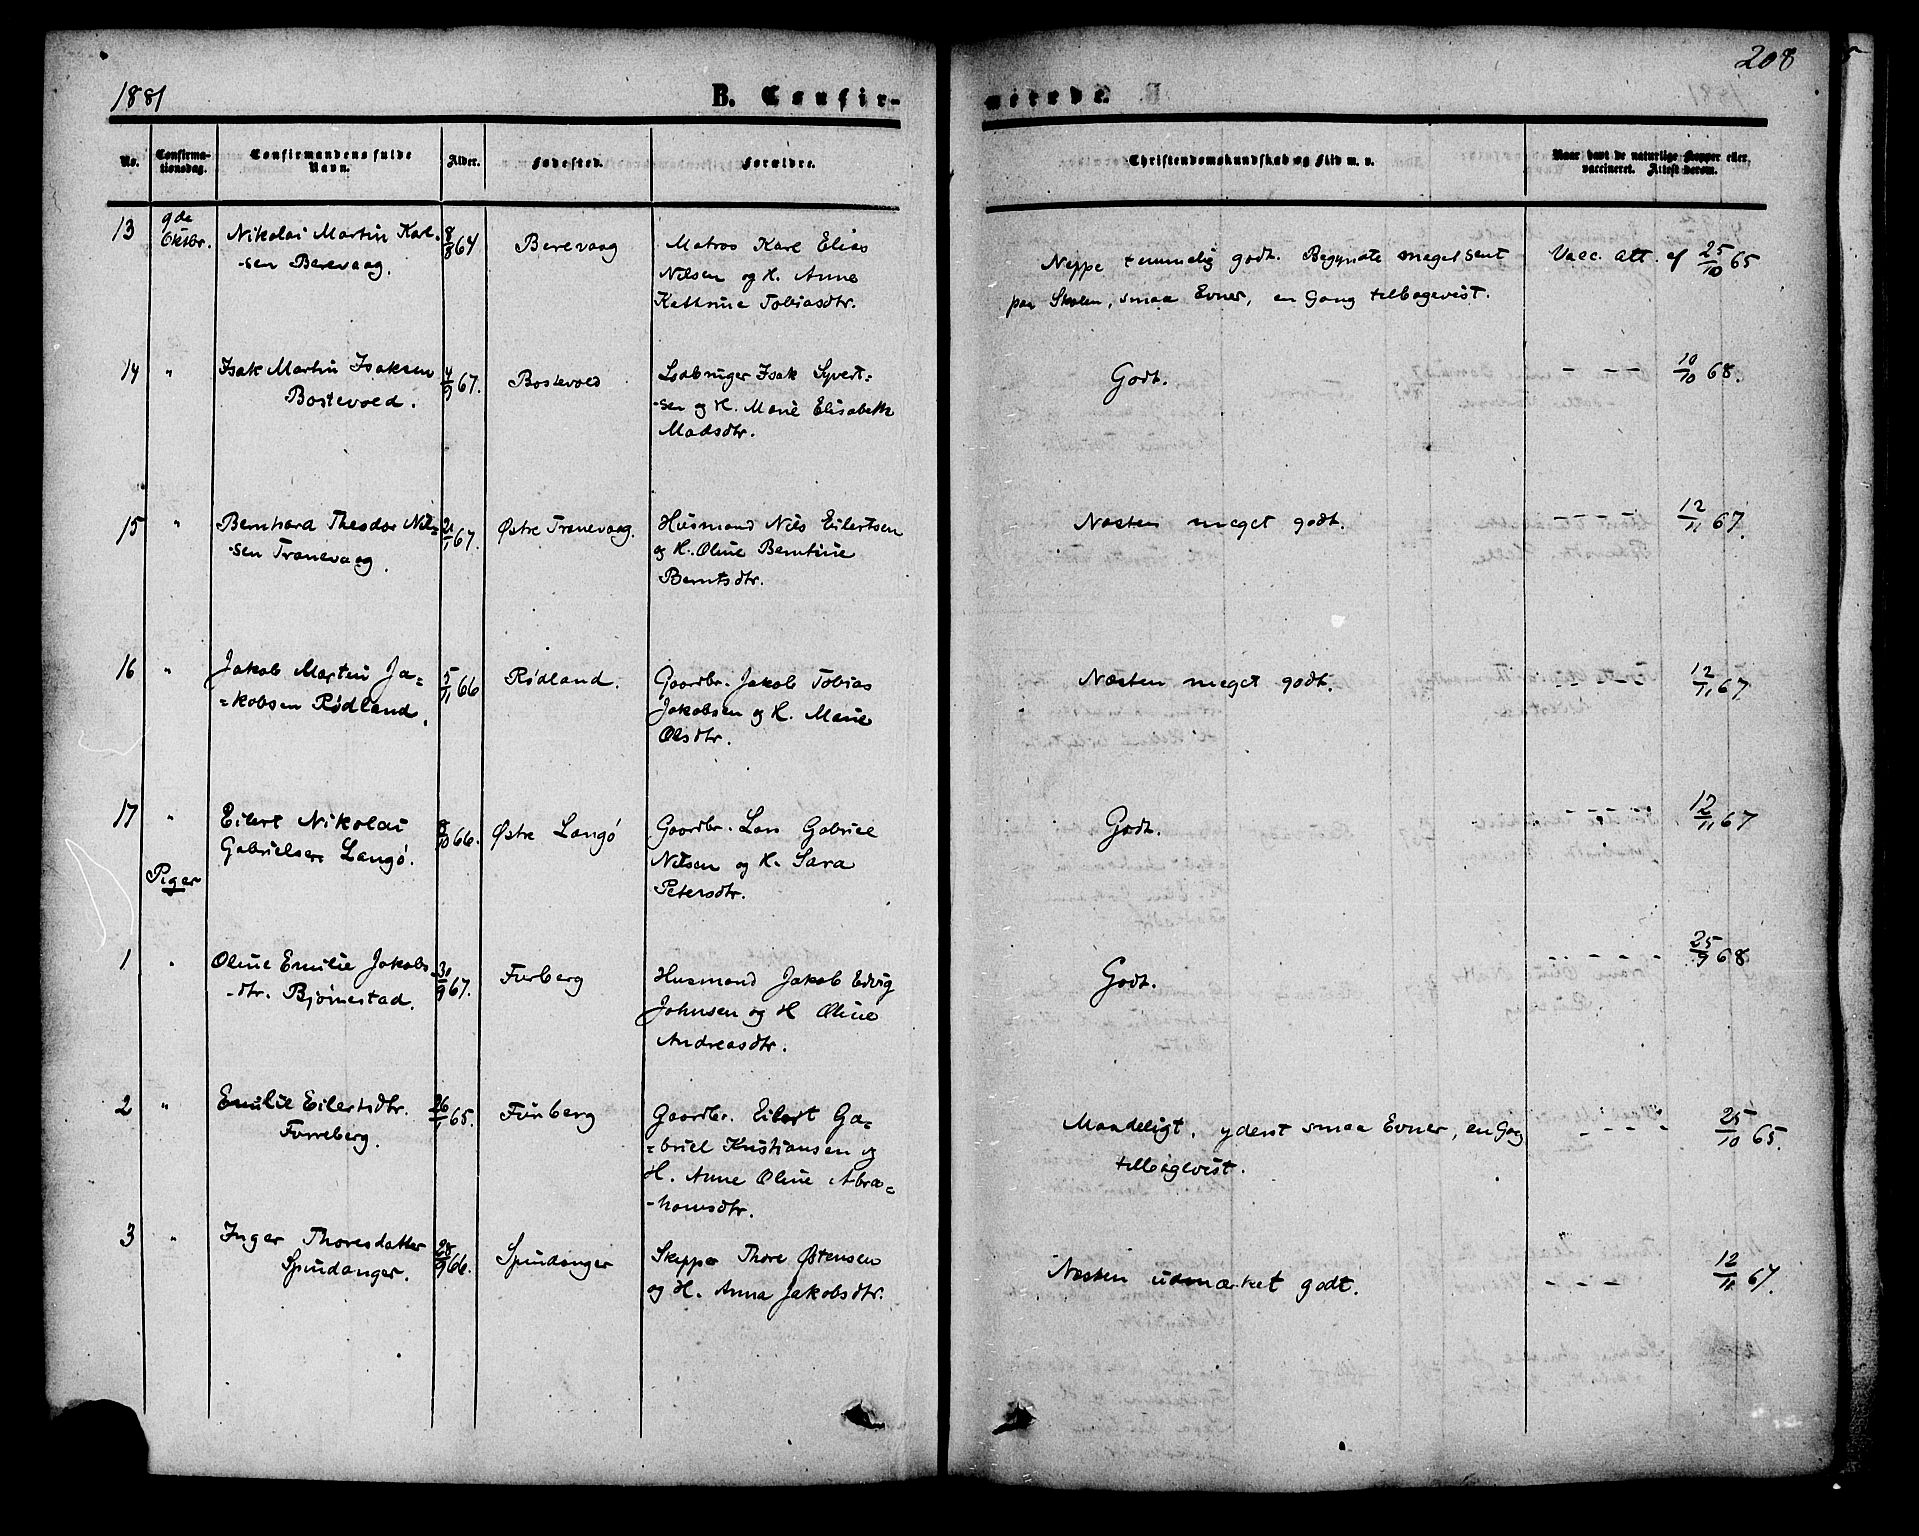 208
1881
B. Confir-
merede.
No.
Confirma-
tionsdag.
Confirmandens fulde
Navn.
Alder.
Fødested.
Forældre.
Christendomskundskab og Flid m. v.
Naar havt de naturlige Kopper eller
vaccineret. Attest derom.
13 9de Oktbr. Nikolai Martin Karl- 8/8 64 Berevaag Matros Karl Elias
sen Berevaag. Nilsen og H. Anne
Kathrine Tobiasdtr.
Neppe temmelig godt. Begyndte meget sent Vacc. att. af 25/10 65
paa Skolen, smaa Evner, en Gang tilbagevist.
14 " Isak Martin Isaksen 4/9 67. Bostevold
Bostevold. Isak Syvert=
-sen og H. Marie Elisabeth
Madsdtr.
Godt. - - - - 10/10 68.
15 " Bernhard Theodor Nil= 21/1 67. Østre Tranevaag. Husmand Nils Eilertsen
-sen Tranevaag. og H. Oline Berntine
Berntsdtr.
Næsten meget godt. - - - - - 12/11 67.
16 " Jakob Martin Ja= 5/11 66 Rødland. Gaardbr. Jakob Tobias
=kobsen Rødland. Jakobsen og H. Marie
Olsdtr.
Næsten meget godt. - - - - - 12/11 67.
17 " Eilert Nikolai 8/10 66. Østre Langø Gaardbr. Lars Gabriel
Gabrielsen Langø. Nilsen og H. Sara
Petersdtr.
Godt. - - - - - 12/11 67
Piger
1 " Oline Emilie Jakobs- 30/9 67. Furberg Husmand Jakob Edvig
-dtr. Bjørnestad. Johnsen og H Oline
Andreasdtr.
Godt. - - - - - 25/9 68
2 " Emilie Eilertsdtr. 26/1 65. Furberg Gaardbr. Eilert Ga=
Furreberg. =briel Kristiansen og
H. Anne Oline Abra=
-hamsdtr.
Maadeligt, yderst smaa Evner, en Gang - - - - 25/10 65.
tilbagevist.
3 " Inger Thoresdatter 28/9 66. Spindanger Skipper Thore Østensen
Spindanger. og H. Anna Jakobsdtr.
Næsten udmærket godt. - - - 12/11 67.